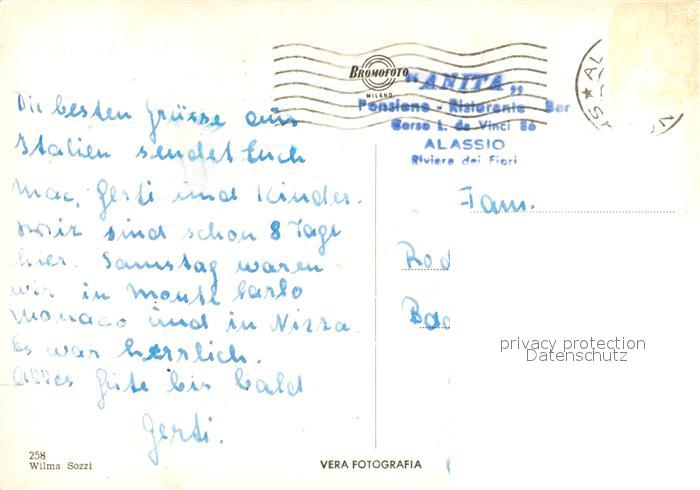 Die besten Grüsse aus
Italien sendet Euch
Mac, Gerti und Kinder.
Wir sind schon 8 Tage
hier. Samstag waren
wir in Monte Carlo
Monaco und in Nizza.
Es war herrlich.
Alles Gute bis bald
Gerti.
258
Wilma Sozzi
VERA FOTOGRAFIA
BROMOFOTO
MILANO
"ANITA"
Pensione - Ristorante - Bar
Corso L. da Vinci 86
ALASSIO
Riviera dei Fiori
Fam.
privacy protection
Datenschutz